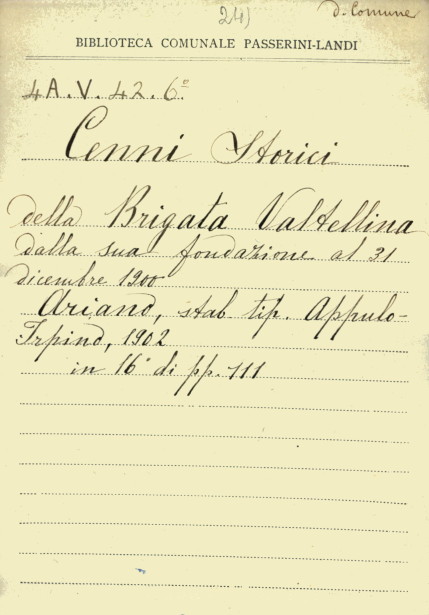 24)
d. Comune
BIBLIOTECA COMUNALE PASSERINI-LANDI
4A.V. 42. 6º
Cenni Storici
della Brigata Valtellina
dalla sua fondazione al 31
dicembre 1900
Ariano, stab. tip. Appulo-
Irpino, 1902
in 16° di pp. 111